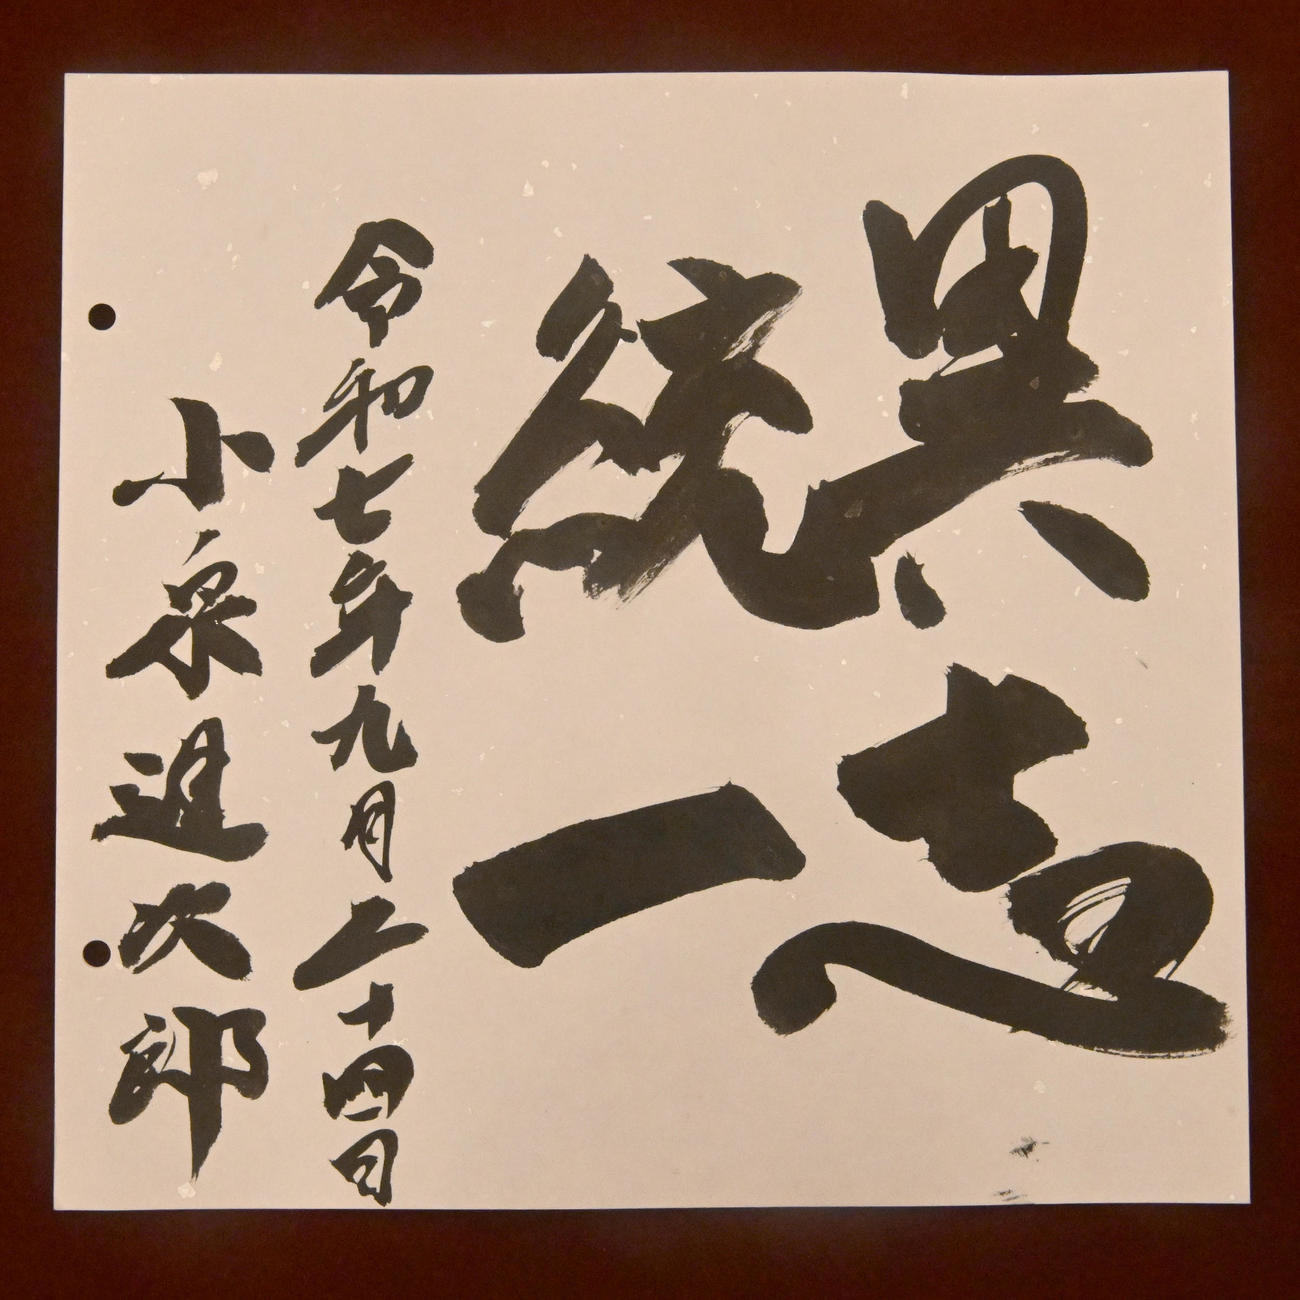 異志
統一
令和七年九月二十四日
小泉進次郎